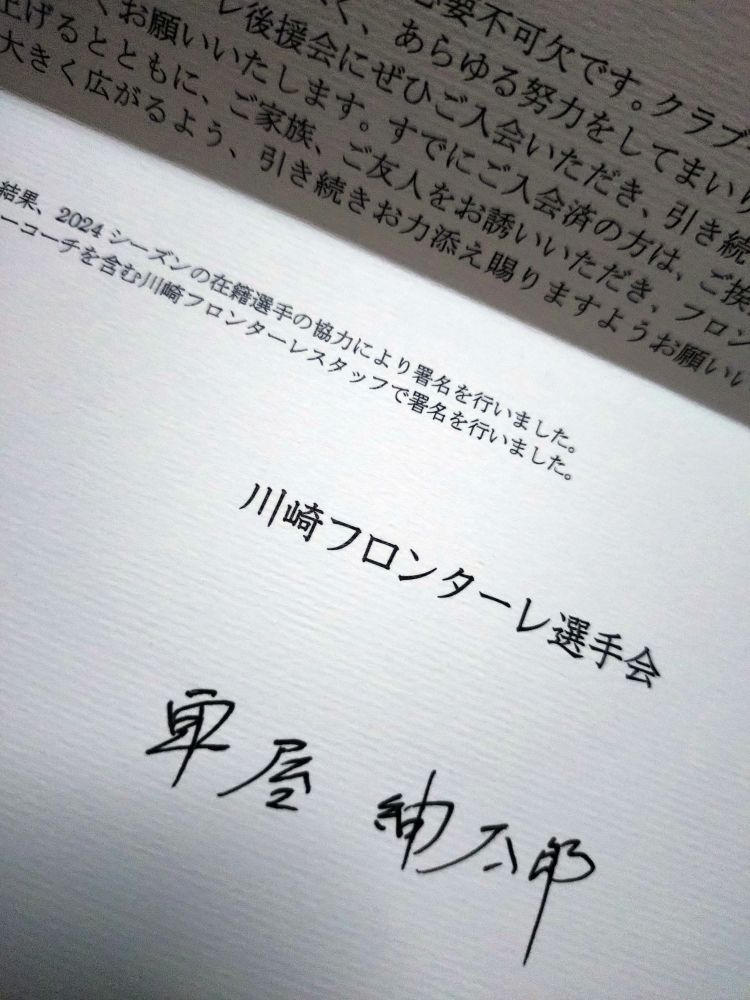 必要不可欠です。クラブ
く、あらゆる努力をしてまいり
レ後援会にぜひご入会いただき、引き続
くお願いいたします。すでにご入会済の方は、ご挨
上げるとともに、ご家族、ご友人をお誘いいただき、フロン
大きく広がるよう、引き続きお力添え賜りますようお願いい
結果、2024シーズンの在籍選手の協力により署名を行いました。
ーコーチを含む川崎フロンターレスタッフで署名を行いました。
川崎フロンターレ選手会
車屋 紳太郎